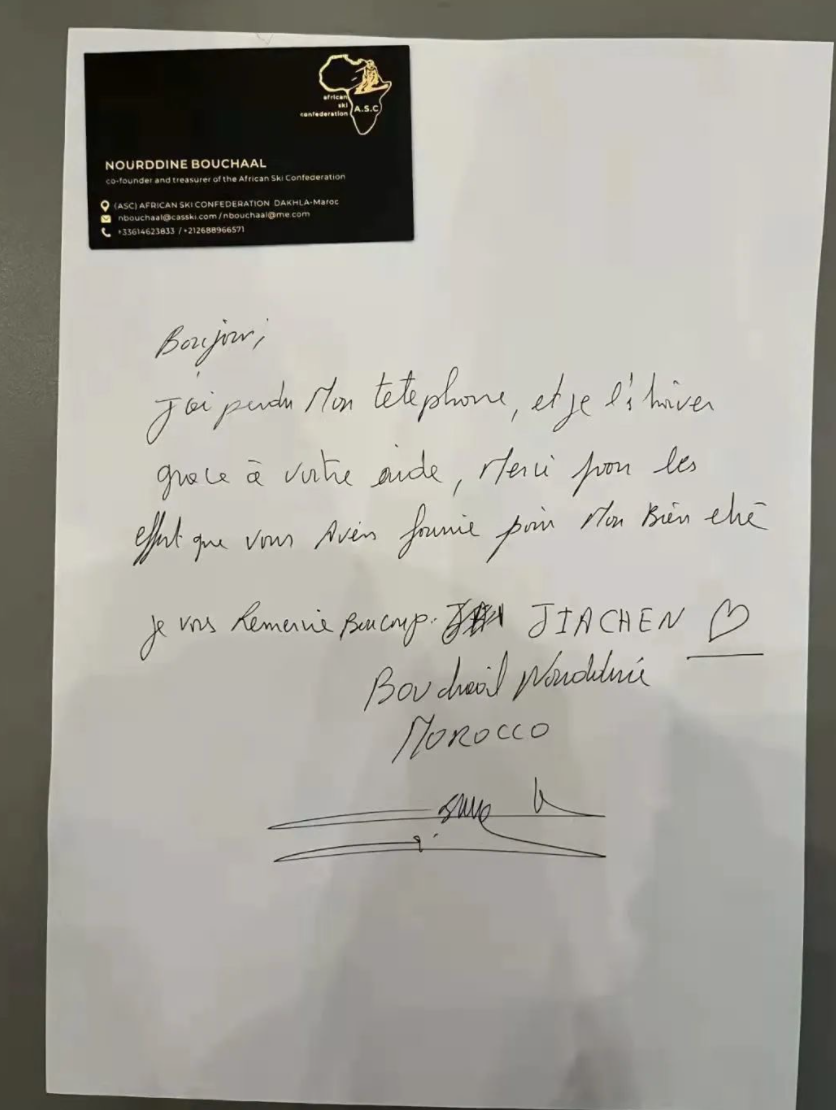 african
ski
confederation
A.S.C
NOURDDINE BOUCHAAL
co-founder and treasurer of the African Ski Confederation
(ASC) AFRICAN SKI CONFEDERATION DAKHLA-Maroc
nbouchaal@casski.com / nbouchaal@me.com
+33614623833 / +212688966571
Bonjour,
J'ai perdu Mon telephone, et je l'
grace à votre aide, Merci pour les
effort que vous Avén fournie pour Mon Bien etré
je vous Remercie Beucoup. JIACHEN ♡
Bouchaal Nourddine
MOROCCO